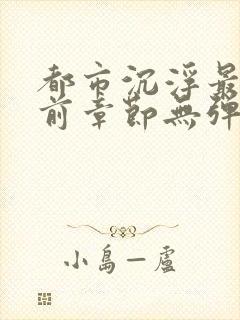 都市沉浮最
前章節無彈
小島一盧